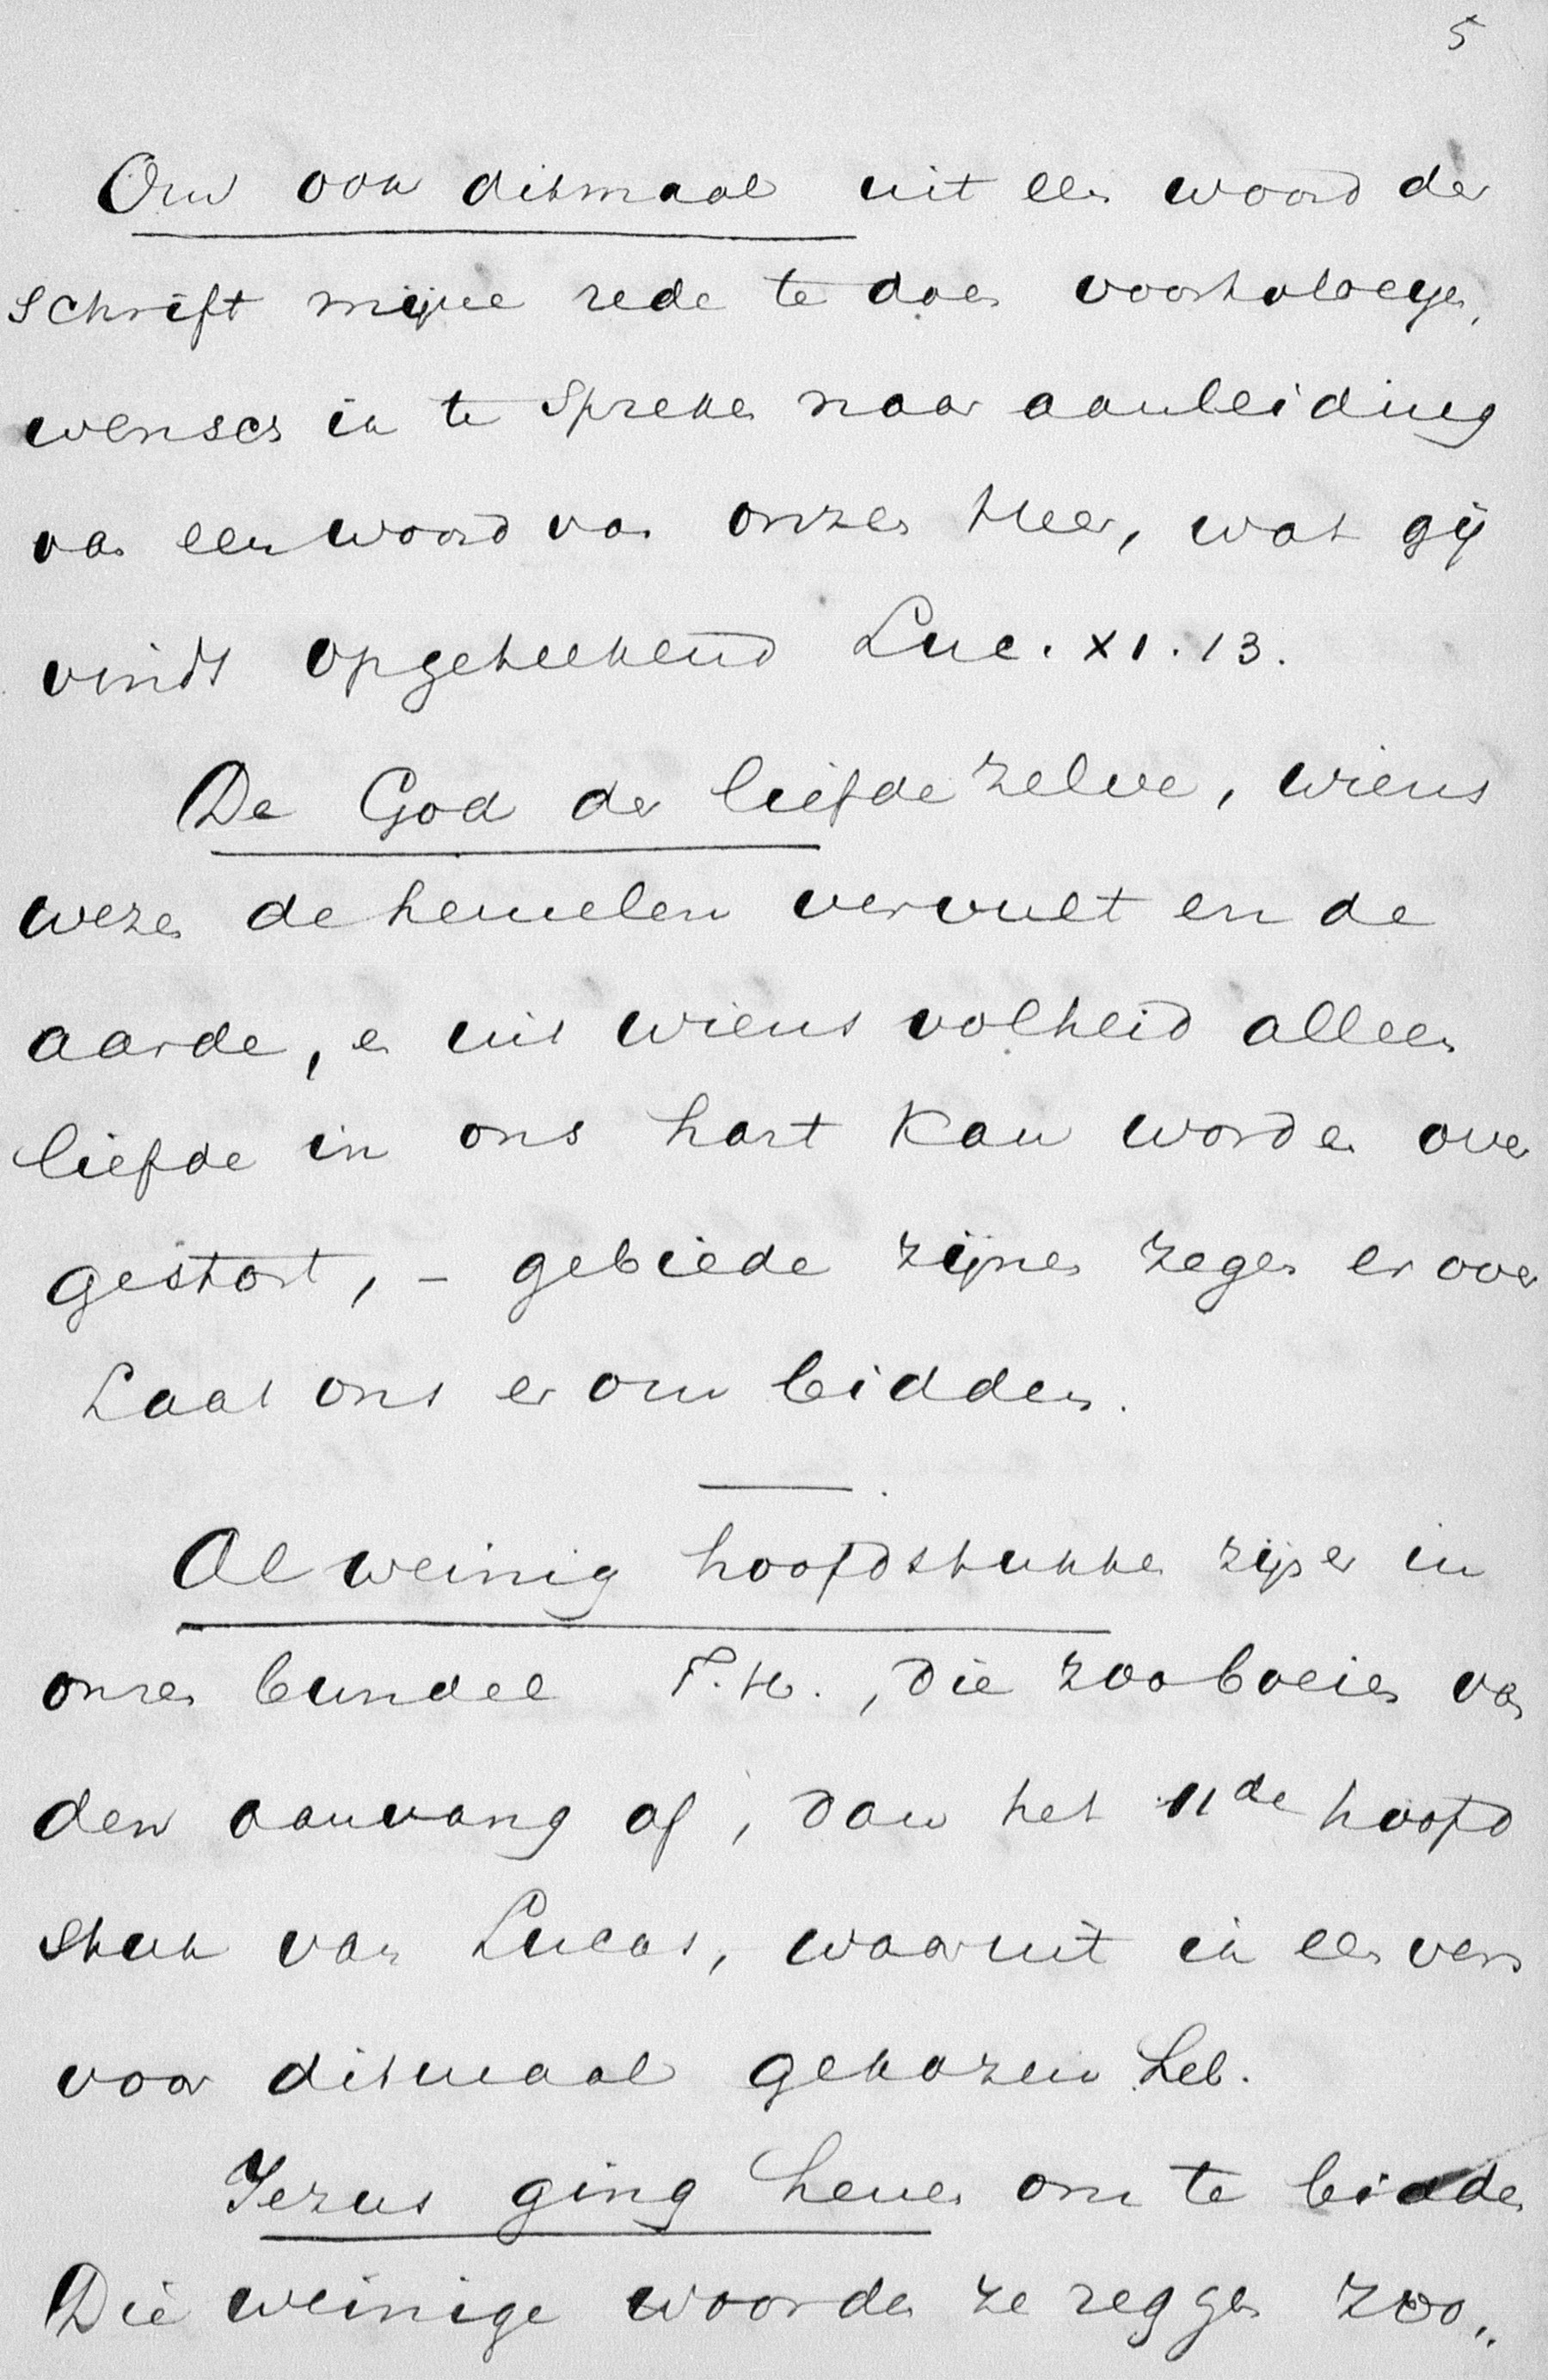 5
Om ook ditmaal uit een woord der
schrift mijne rede te doen voortvloeyen,
wensch ik te spreken naar aanleiding
van een woord van onzen Heer, wat gij
vindt opgeteekend Luc. XI. 13.
De God der liefde zelve, wiens
wezen de hemelen vervult en de
aarde, en uit wiens volheid alleen
liefde in ons hart kan worden over
gestort, - gebiede zijnen zegen er over
Laat ons er om bidden.
Al weinig hoofdstukken zijn er in
onzen bundel T. H., die zoo boeien van
den aanvang af, dan het 11de hoofd
stuk van Lucas, waaruit ik een vers
voor ditmaal gekozen heb.
Jezus ging henen om te bidden
Die weinige woorden ze zeggen zoo„